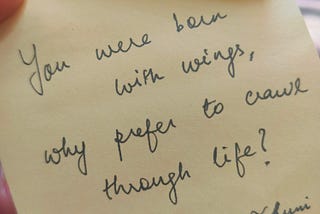 You were born
with wings,
why prefer to crawl
through life?